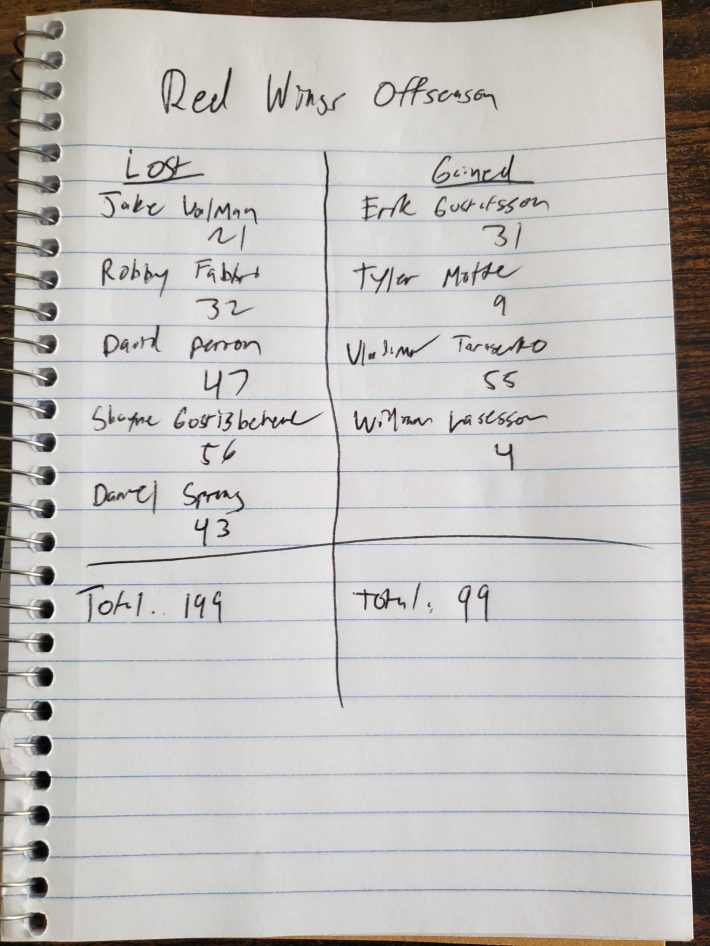 Red Wings Offseason
Lost
Jake Walman
21
Robby Fabbri
32
David perron
47
Shayne Gostisbehere
56
Daniel Sprong
43
Total. 199
Gained
Erik Gustafsson
31
Tyler Motte
9
Vladimir Tarasenko
55
William Lagesson
4
Total. 99